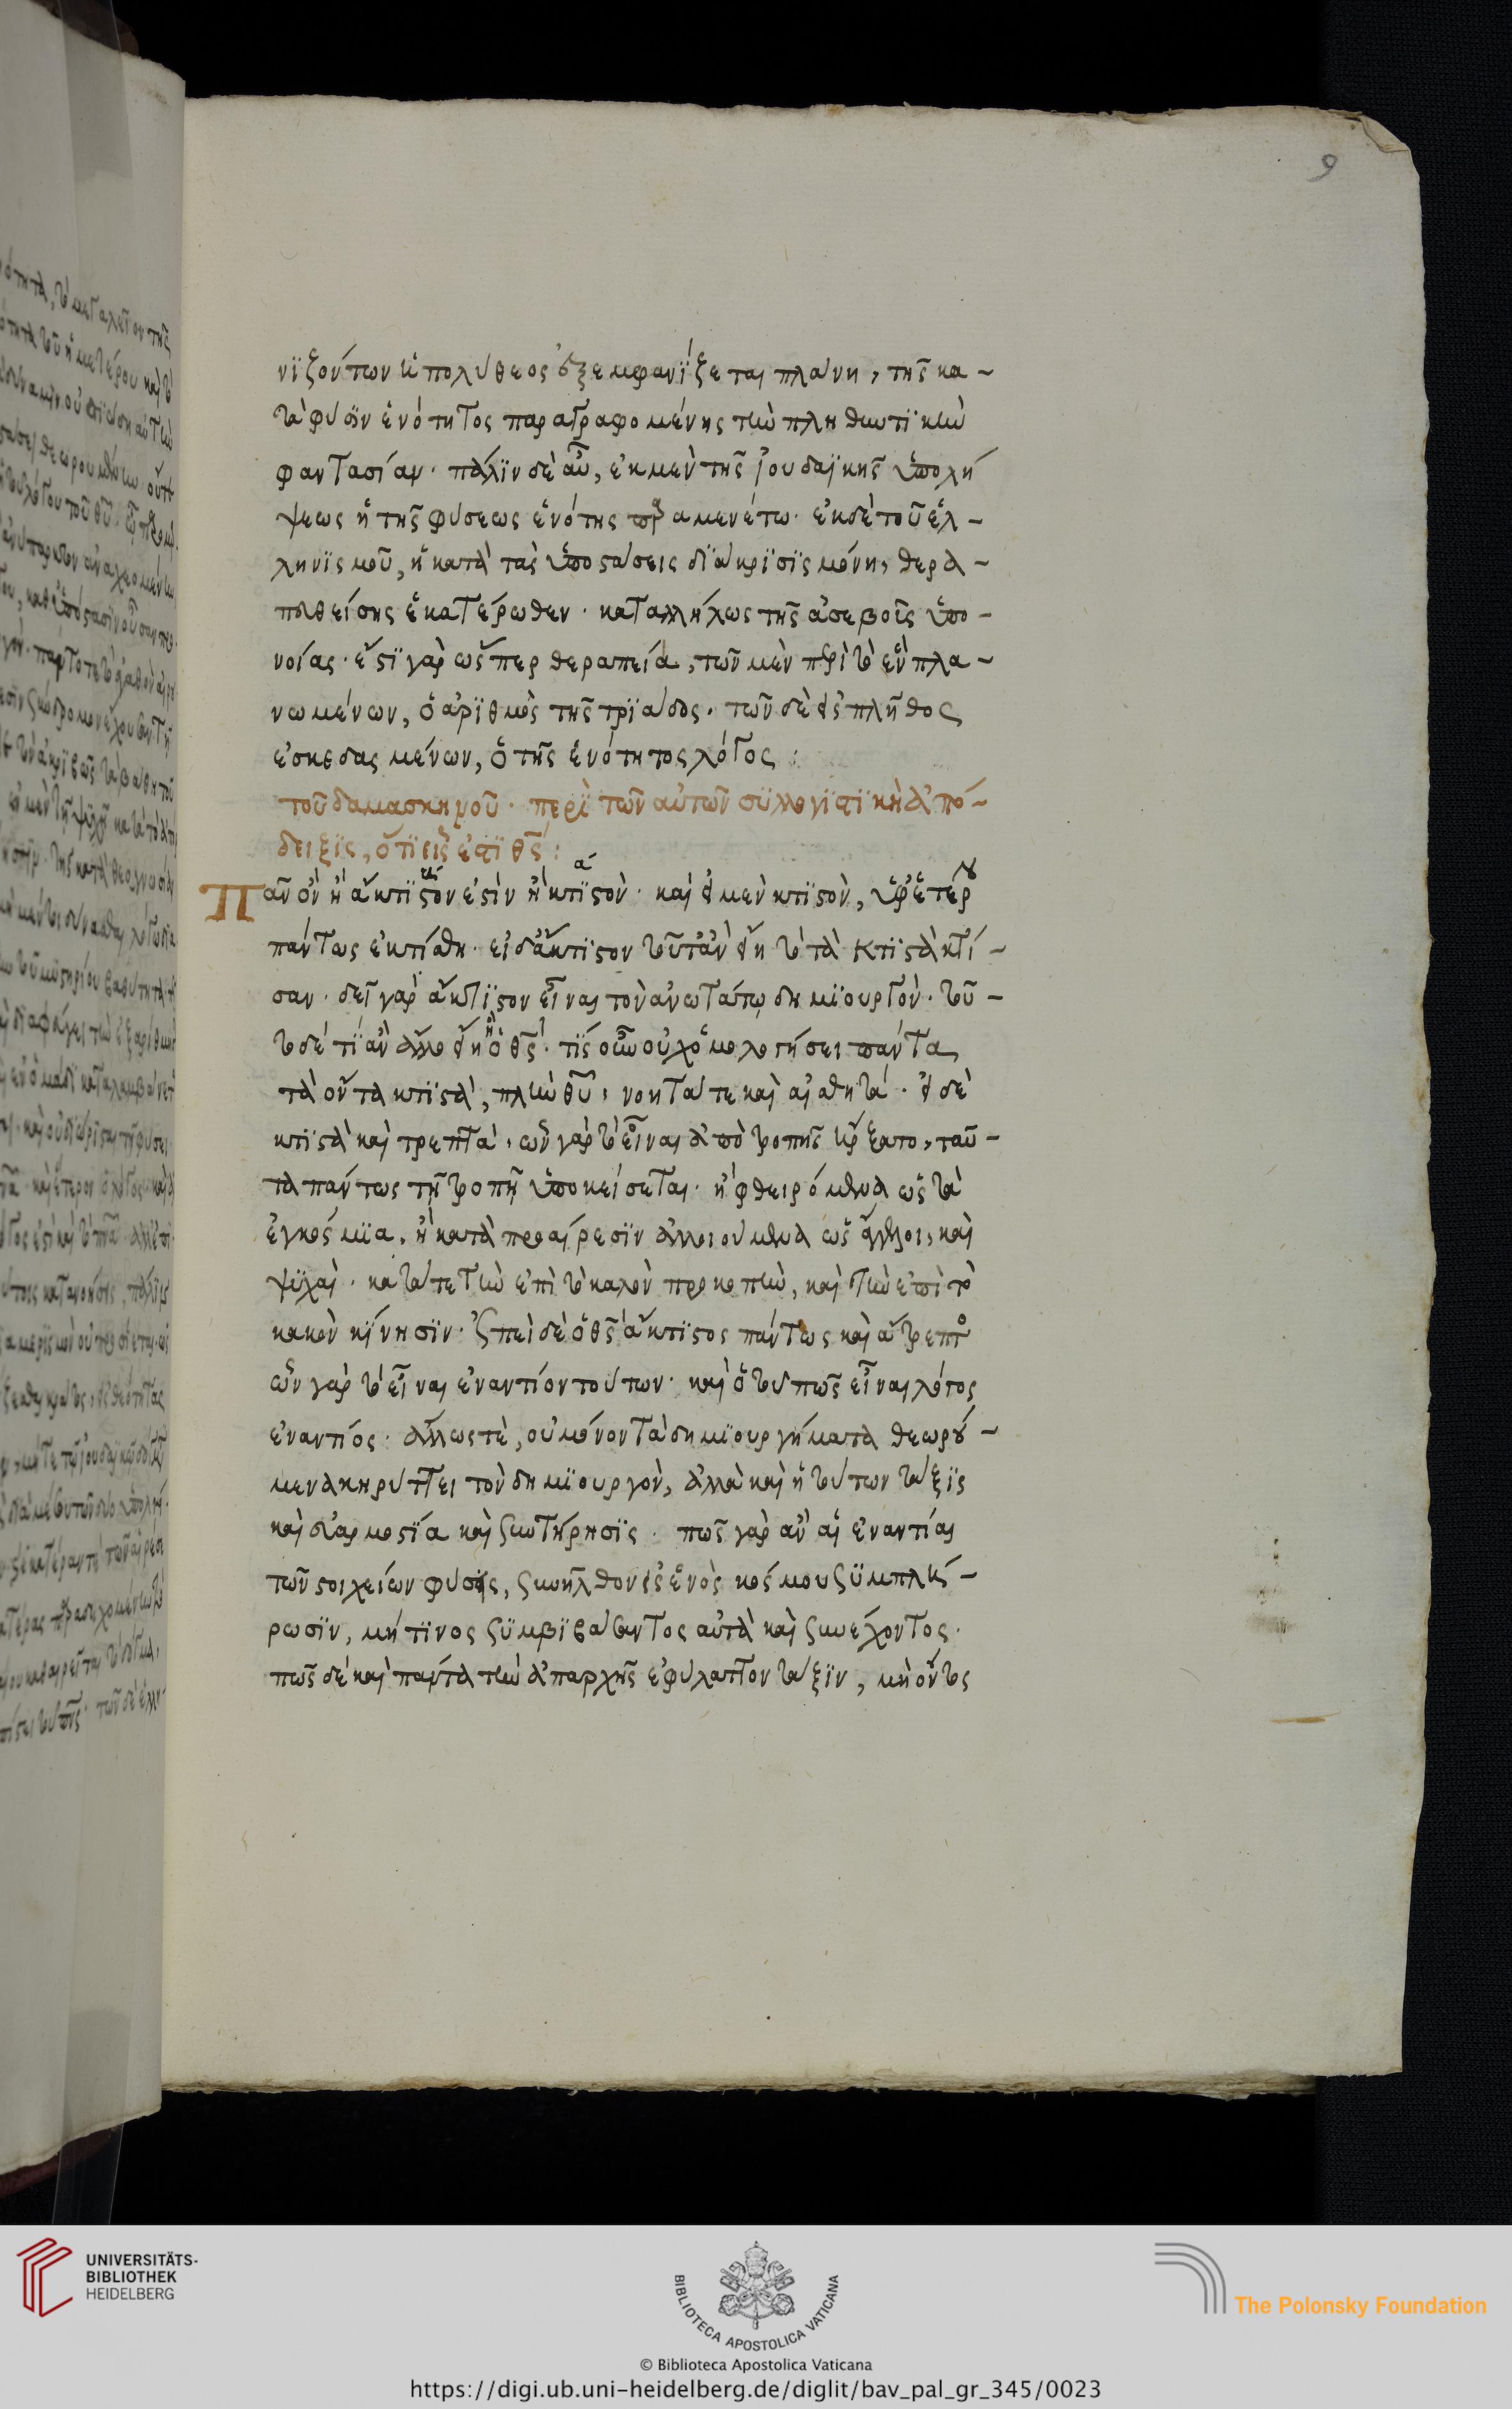 9
νϊζόντων ἡ πολύθεος ἐξεμφανίζεται πλάνη, τῆς κα-
τὰ φύσϊν ἑνότητος παραγραφομένης τὴν πληθυντϊκὴν
φαντασίαν· πάλϊν δὲ αὖ, ἐκ μὲν τῆς ἰουδαϊκῆς ὑπολή
ψεως ἡ τῆς φύσεως ἑνότης παραμενέτω· ἐκ δὲ τοῦ ἑλ-
ληνϊσμοῦ, ἡ κατὰ τὰς ὑποστάσεις δϊάκρϊσϊς μόνη, θερα-
πευθείσης ἑκατέρωθεν· καταλλήλως τῆς ἀσεβοῦς ὑπο-
νοίας· ἔστϊ γὰρ ὥσπερ θεραπεία, τῶν μὲν περὶ τὸ ἓν πλα-
νωμένων, ὁ ἀρϊθμὸς τῆς τρϊάδος· τῶν δὲ εἰς πλῆθος
ἐσκεδασμένων, ὁ τῆς ἑνότητος λόγος :
τοῦ δαμασκηνοῦ· περὶ τῶν αὐτῶν συλλογϊστϊκὴ ἀπό-
δειξϊς, ὅτϊ εἷς ἐστϊ θς :
Πᾶν ὂν ἢ ἄκτϊστόν ἐστὶν ἢ κτϊστὸν· καὶ εἰ μὲν κτϊστὸν, ὑφ' ἑτέρου
πάντως ἐκτίσθη· εἰ δ' ἄκτϊστον τοῦτ' ἂν εἴη τὸ τὰ κτϊστὰ κτί-
σαν· δεῖ γὰρ ἄκτϊστον εἶναι τὸν ἀνωτάτω δημϊουργὸν· τοῦ-
το δέ τϊ ἂν ἄλλο εἴη ἢ ὁ θς· τίς οὖν οὐχ ὁμολογήσει πάντα
τὰ ὄντα κτϊστὰ, πλὴν θῦ, νοητά τε καὶ αἰσθητά· εἰ δὲ
κτϊστὰ καὶ τρεπτὰ· ὧν γὰρ τὸ εἶναι ἀπὸ τροπῆς ἤρξατο, ταῦ-
τα πάντως τῇ τροπῇ ὑποκείσεται· ἢ φθειρόμενα ὡς τὰ
ἐγκόσμϊα, ἢ κατὰ προαίρεσϊν ἀλλοιούμενα ὡς ἄγγελοι, καὶ
ψϋχαὶ· κατά τε τὴν ἐπὶ τὸ καλὸν προκοπὴν, καὶ τὴν ἐπὶ τὸ
κακὸν κίνησϊν· ἐπεὶ δὲ ὁ θς ἄκτϊστος πάντως καὶ ἄτρεπτος
ὧν γὰρ τὸ εἶναι ἐναντίον τούτων· καὶ ὁ τοῦ πῶς εἶναι λόγος
ἐναντίος· ἄλλως τὲ, οὐ μόνον τὰ δημϊουργήματα θεωρού-
μενα κηρύττει τὸν δημϊουργὸν, ἀλλὰ καὶ ἡ τούτων τάξϊς
καὶ εὐαρμοστία καὶ συντήρησϊς· πῶς γὰρ ἂν αἱ ἐναντίαι
τῶν στοιχείων φύσεις, συνῆλθον εἰς ἑνὸς κόσμου συμπλή-
ρωσϊν, μή τϊνος συμβϊβάσαντος αὐτὰ καὶ συνέχοντος·
πῶς δὲ καὶ πάντα τὴν ἀπαρχῆς ἐφύλαττον τάξϊν, μὴ ὄντος
UNIVERSITÄTS-
BIBLIOTHEK
HEIDELBERG
BIBLIOTECA APOSTOLICA VATICANA
The Polonsky Foundation
© Biblioteca Apostolica Vaticana
https://digi.ub.uni-heidelberg.de/diglit/bav_pal_gr_345/0023